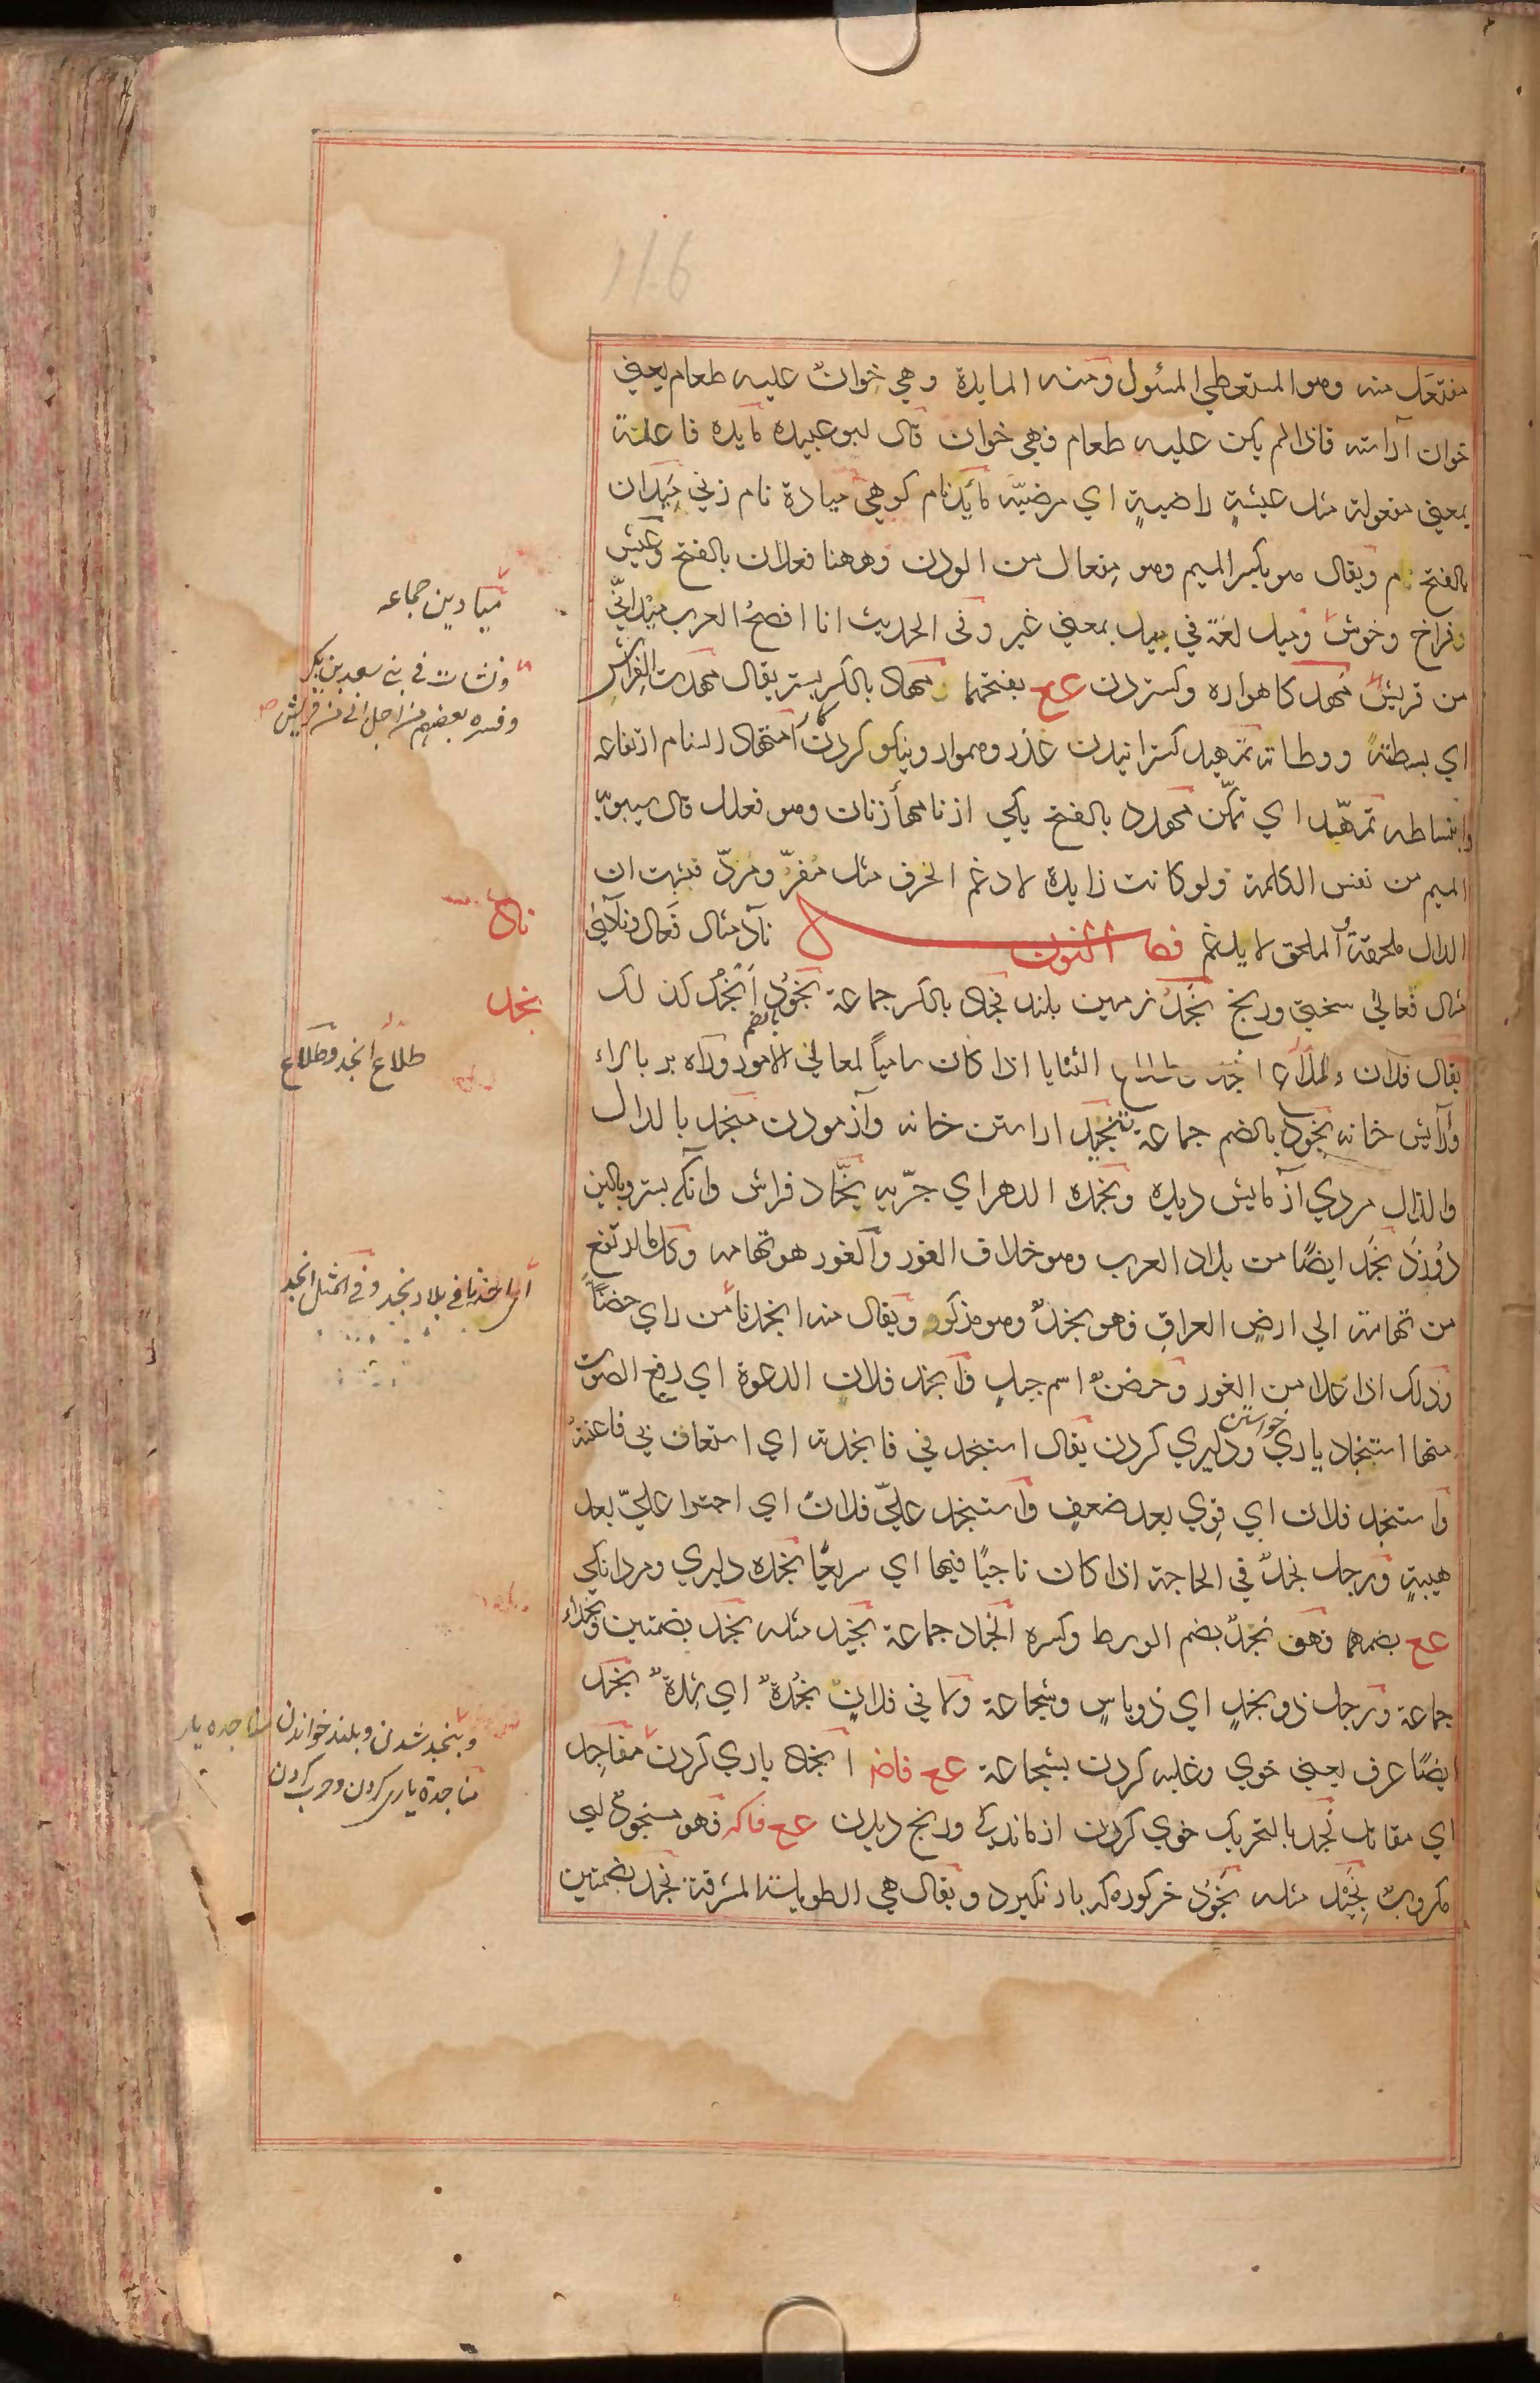 مفتعل منه وهو المستعطي المسئول ومنه المايدة وهي خوان عليه طعام يعني
خوان آراسته فاذا لم يكن عليه طعام فهي خوان قال ابو عبيده مايده فاعلة
بمعني مفعولة مثل عيشةٍ راضيةٍ اي مرضيّة مايد نام كوهي ميادة نام زني ميدان
بالفتح م ويقال هو بكسر الميم وهو مِفعال من الودن وههنا فعلان بالفتح وعيش
وفراخ وخوش وميد لغة في بيد بمعني غير وفي الحديث انا افصحُ العرب ميد انّي
من قريش مهد كاهواره وكستردن عع بفتحهما مهاد بالكسر بستر يقال مهدت الفراش
اي بسطتهُ ووطاته تمهيد كسترانيدن عذر وهموار ونيكو كردن امتهاد السنام ارتفاعه
وانبساطه تمهّد اي تمكّن مهدد بالفتح يكي از نامهأ زنان وهو فعلل قال سيبويه
الميم من نفس الكلمة ولو كانت زايدة لادغم الحرف مثل مفرّ ومردّ فثبت ان
الدال ملحقة والملحق لا يدغم فصل النون نآد مثال فَعال ونآدي
مثال فَعالي سختي ورنج نجد زمين بلند نجاد بالكسر جماعة نجود انجُد كذلك
بالضم
يقال فلان طلاع انجد وطلاع الثنايا اذا كان سامياً لمعالي الامور وراه بر بالاء
وآرايش خانه نجود بالضم جماعة تنجيد اراستن خانه وآزمودن منجد بالدال
والذال مردي آزمايش ديده ونجده الدهر اي جرّبه نجّاد فراش وآنكه بستر وبالين
دوزد نجد ايضًا من بلاد العرب وهو خلاف الغور والغور هو تهامه وكل ما ارتفع
من تهامة الي ارض العراق فهو نجدٌ وهو مذكر ويقال منه انجدنا من راي حضنًا
وذلك اذا علا من الغور وحضنٌ اسم جبلٍ وانجد فلانٍ الدعوة اي رفع الصوت
خواستن
منها استنجاد ياري ودليري كردن يقال استنجد ني فانجدته اي استعان بي فاعنته
واستنجد فلان اي قوي بعد ضعفٍ واستنجد عليّ فلان اي اجترا عليّ بعد
هيبةٍ ورجل نجدٌ في الحاجة اذا كان ناجيًا فيها اي سريعًا نجده دليري ومردانكي
عع بضمهما فهو نجدٌ بضم الوسط وكسره انجاد جماعة نجيد مثله نجد بضمتين ونجداء
جماعة ورجل ذو نجدٍ اي ذو باسٍ وشجاعة ولاقي فلانٌ نجدةٌ اي شدّةٌ نجد
ايضًا عرق يعني خوي وغلبه كردن بشجاعة عع فاضر انجاد ياري كردن مناجد
اي مقاتل نجد بالتحريك خوي كردن از ماندكي ورنج ديدن عع فاكه فهو منجودٌ اي
مكروبٌ نجيد مثله نجود خركوره كه بار نكيرد ويقال هي الطويلة المشرفة نجد بضمتين
ميادين جماعه
ونشات في بني سعد بن بكر
وفسره بعضهم من اجل اني من قريش
ناد
نجد
طلاع انجد وطلاع
اي اخذنا في بلاد نجد وفي المثل انجد
وبنجد شدن وبلند خواندن مناجده يار
مناجدة ياري كردن وحرب كردن